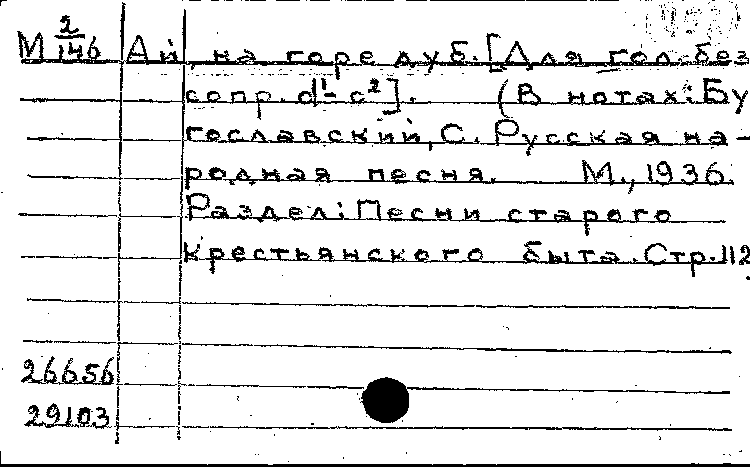 М 2/146 Ай, на горе дуб. [Для гол. без
сопр. d¹-c²]. (В нотах: Бу
гославский, С. Русская на-
родная песня. М., 1936.
Раздел: Песни старого
крестьянского быта. Стр. 112
26656
29103